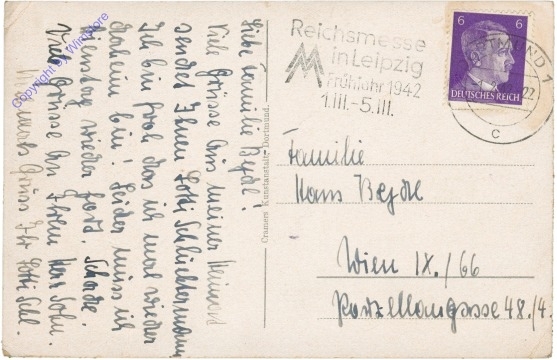 Liebe Familie Bejdl!
Viele Grüsse aus meiner Heimat
sendet Ihnen Lotti Schlichtermann
Ich bin froh das ich mal wieder
daheim bin! Leider muss ich
Dienstag wieder fort. Schade.
Viele Grüsse an Ihren Herr Sohn.
Grüss Ihr Lotti Schl.
Copyright by WinStore
Cramers Kunstanstalt, Dortmund.
Reichsmesse
in Leipzig
Frühjahr 1942
1.III.-5.III.
6 6
DEUTSCHES REICH
DORTMUND 1
22
c
Familie
Hans Bejdl
Wien IX./66
Porzellangasse 48./4.